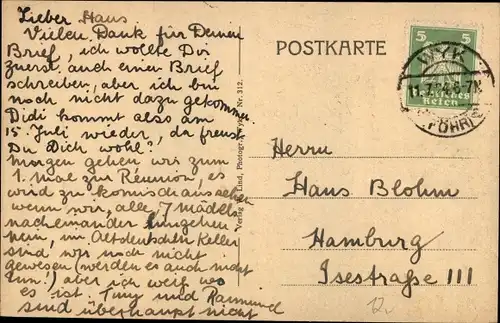 Lieber Hans
Vielen Dank für Deinen
Brief, ich wollte Dir
zuerst auch einen Brief
schreiben, aber ich bin
noch nicht dazu gekommen.
Didi kommt also am
15. Juli wieder, da freust
Du Dich wohl?
Morgen gehen wir zum
1. mal zur Réunion, es
wird zu komisch aussehen
wenn wir, alle 7 Mädels
nacheinander
im Altdeutschen Keller
sind wir noch nicht
gewesen (werden es auch nicht
tun!) aber ich weiß wo
es ist. Tiny und Raimund
sind überhaupt nicht
Verlag Lind, Photogr., Wyk Nr. 312.
POSTKARTE
5 5
Deutsches
Reich
WYK
FÖHR
Herrn
Hans Blohm
Hamburg
Isestraße 111